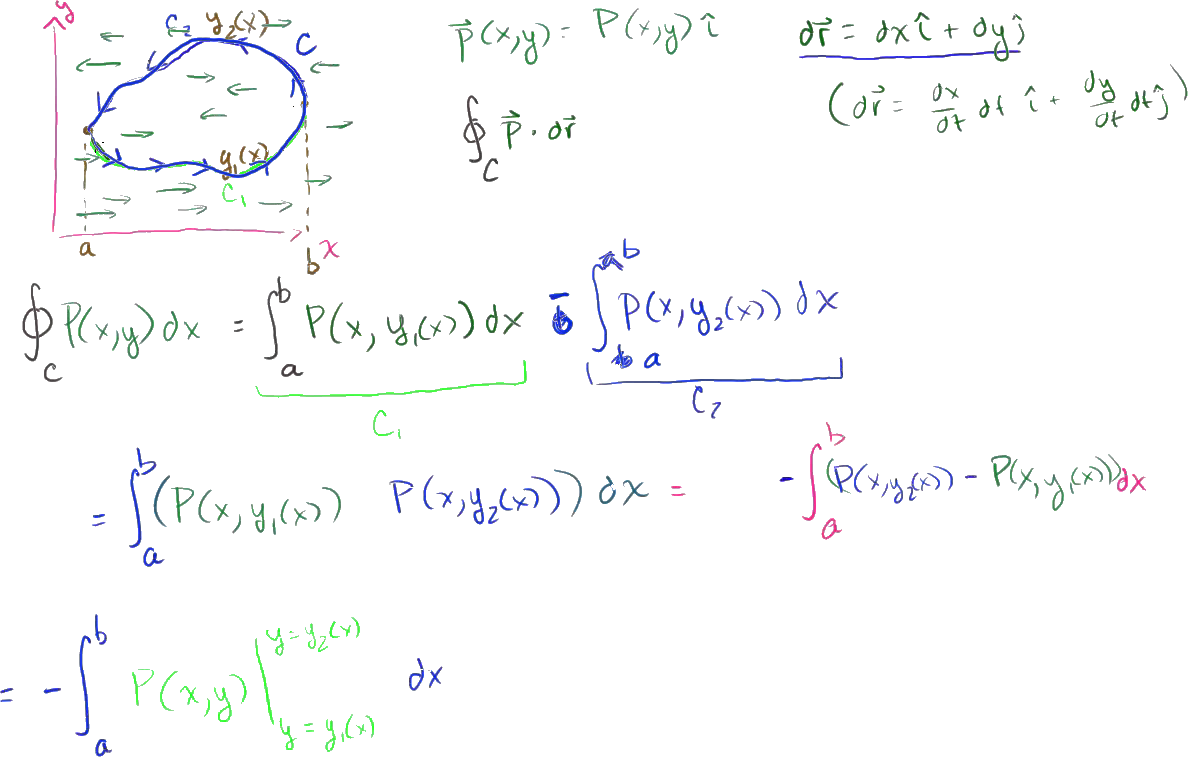 y
C₂ y₂(x)
C
y₁(x)
C₁
a
b
x
P⃗(x,y) = P(x,y) î
dr⃗ = dx î + dy ĵ
(dr⃗ = dx/dt dt î + dy/dt dt ĵ)
∮_C P⃗ · dr⃗
∮_C P(x,y) dx = ∫_a^b P(x, y₁(x)) dx - ∫_a^b P(x, y₂(x)) dx
C₁ C₂
= ∫_a^b (P(x, y₁(x)) P(x, y₂(x))) dx = - ∫_a^b (P(x, y₂(x)) - P(x, y₁(x))) dx
= - ∫_a^b P(x,y) |_{y = y₁(x)}^{y = y₂(x)} dx